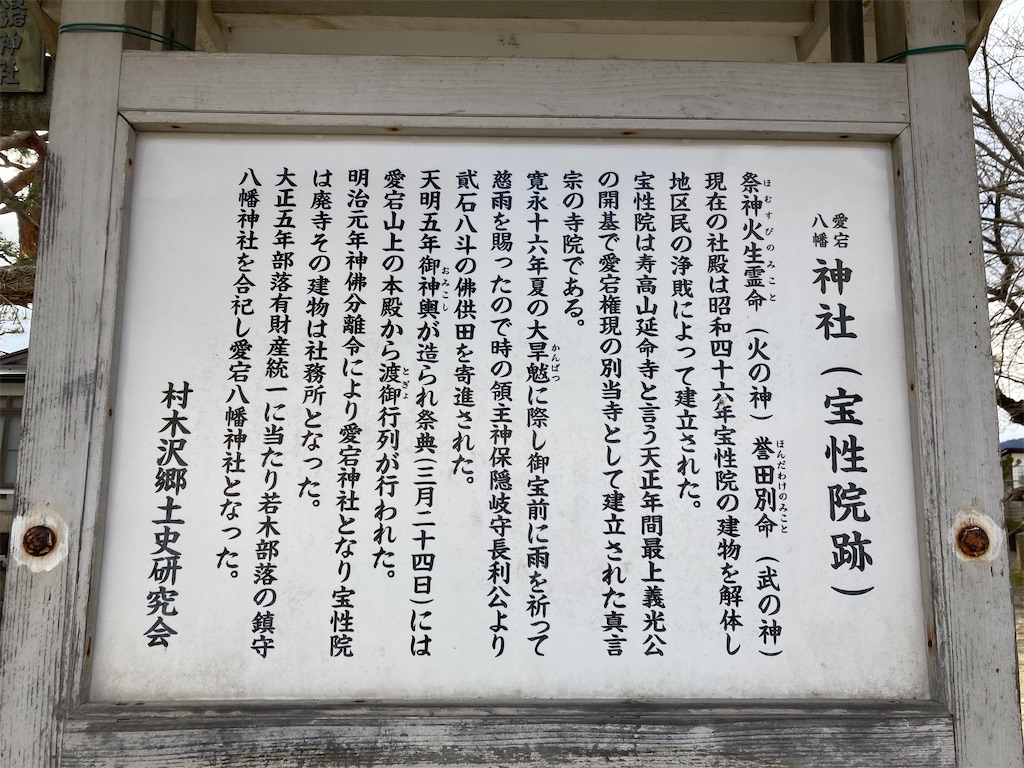 愛宕八幡神社(宝性院跡)
祭神火生霊命(火の神)誉田別命(武の神)
ほむすびのみこと
ほんだわけのみこと
現在の社殿は昭和四十六年宝性院の建物を解体し
地区民の浄戝によって建立された。
宝性院は寿高山延命寺と言う天正年間最上義光公
の開基で愛宕権現の別当寺として建立された真言
宗の寺院である。
寛永十六年夏の大旱魃に際し御宝前に雨を祈って
かんばつ
慈雨を賜ったので時の領主神保隠岐守長利公より
貮石八斗の佛供田を寄進された。
天明五年御神輿が造られ祭典(三月二十四日)には
おみこし
愛宕山上の本殿から渡御行列が行われた。
とぎょ
明治元年神佛分離令により愛宕神社となり宝性院
は廃寺その建物は社務所となった。
大正五年部落有財産統一に当たり若木部落の鎮守
八幡神社を合祀し愛宕八幡神社となった。
村木沢郷土史研究会
神社